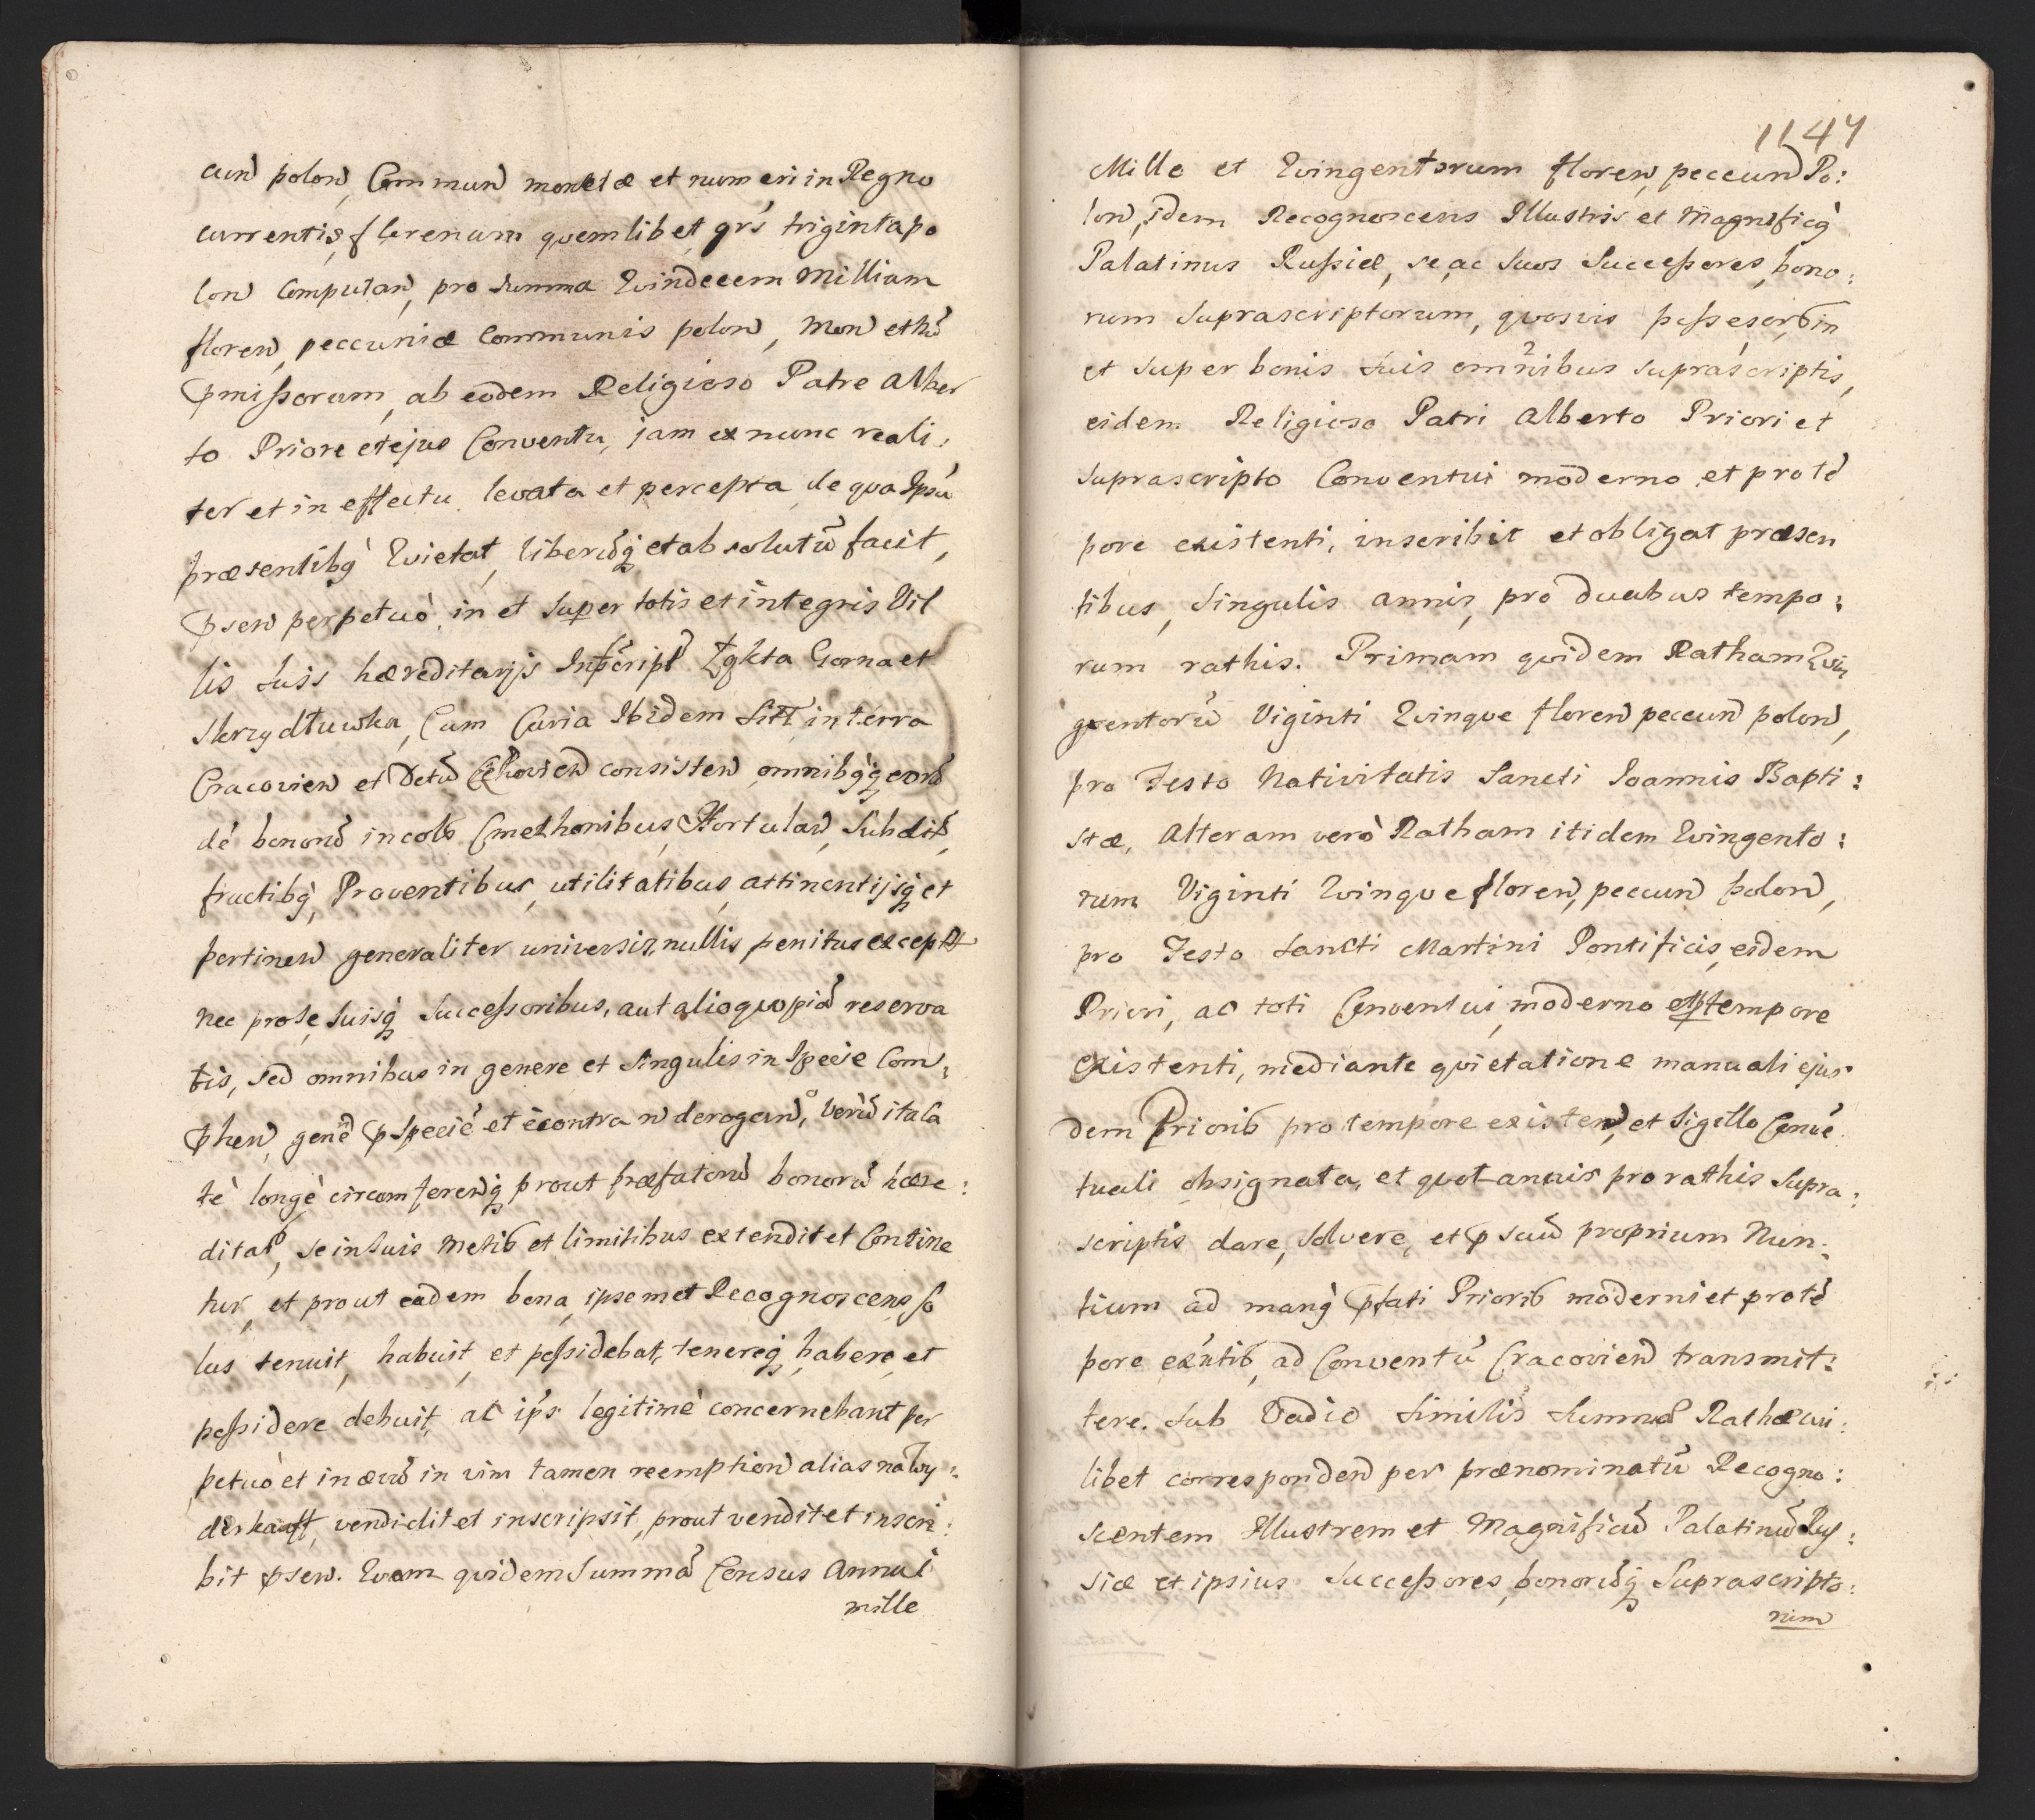 cun polon, Commun monetæ et numeri in Regno
currentis, florenum quemlibet grs triginta po
lon computan, pro summa Quindecem Milliam
floren, peccuniæ Communis polon, Mon et
pmissorum, ab eodem Religioso Patre Alber
to Priore et ejus Conventu, jam ex nunc reali:
ter et in effectu levata et percepta de qua Ipsū
præsentibq Quietat, liberūq et absolutū facit,
psen perpetuò in et super totis et integris Vil
lis suis hæreditarijs Zgłta Gorna et
Skrzydłuwka, Cum Curia Ibidem Sitt, in terra
Cracovien et consisten omnibqq eorū
dē bonorū incolis Cmethonibus, Hortulan, Subdit,
fructibq, Proventibus, utilitatibus, attinentijsq et
pertinen generaliter universis, nullis penitus except
nec pro se, suisq Successoribus, aut alio quopiā reserva
tis, sed omnibus in genere et singulis in Specie Com:
phen, genē p Specie et econtra n derogan, Verū ita la
tè longè circumferenq prout præfatorū bonorū hære:
ditat, se in suis Metis et limitibus extendit et Contine
tur, et prout eadem bona ipsemet Recognoscens so
lus tenuit, habuit, et possidebat, tenereq, habere, et
possidere debuit, ac ips legitimè concernebant per
petuò et in ævū in vim tamen reemption alias na wy:
derkauff, vendidit et inscripsit, prout vendit et inscri:
bit psen. Quam quidem Summā Census Annui
mille
1147
Mille et Quingentorum floren, peccun Po:
lon, idem Recognoscens Illustris et Magnificq
Palatinus Russiæ, se, ac suos Successores, bono:
rum suprascriptorum, quosvis possesores in
et super bonis suis omnibus supráscriptis,
eidem Religioso Patri Alberto Priori et
suprascripto Conventui moderno et pro tē
pore existenti, inscribit et obligat præsen
tibus, singulis annis, pro duabus tempo:
rum rathis. Primam quidem Ratham Quin
gentorū Viginti Quinque floren peccun polon,
pro Festo Nativitatis Sancti Joannis Bapti:
stæ, Alteram verò Ratham itidem Quingento:
rum Viginti Quinque floren, peccun polon,
pro Festo Sancti Martini Pontificis, eidem
Priori, ac toti Conventui, moderno et p tempore
existenti, mediante quietatione manuali ejus
dem Prioris pro tempore existen, et Sigillo Convē
tuali obsignata, et quotannis pro rathis supra:
scriptis dare, solvere, et p suū proprium Nun:
tium ad manq pfati Prioris moderni et pro tē
pore exntis, ad Conventū Cracovien transmit:
tere. Sub Vadio similis summæ Rathæ cui:
libet corresponden per prænominatū Recogno:
scentem Illustrem et Magnificū Palatinū Rus:
siæ et ipsius Successores, bonorūq Suprascripto:
rum